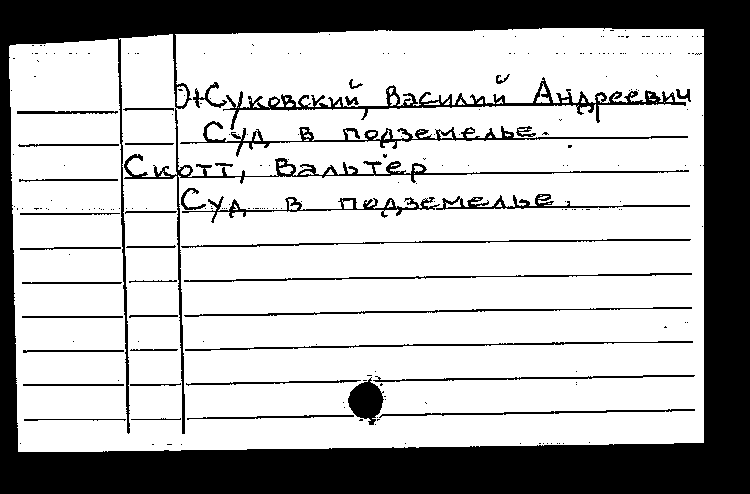 Жуковский, Василий Андреевич
Суд в подземелье.
Скотт, Вальтер
Суд в подземелье.